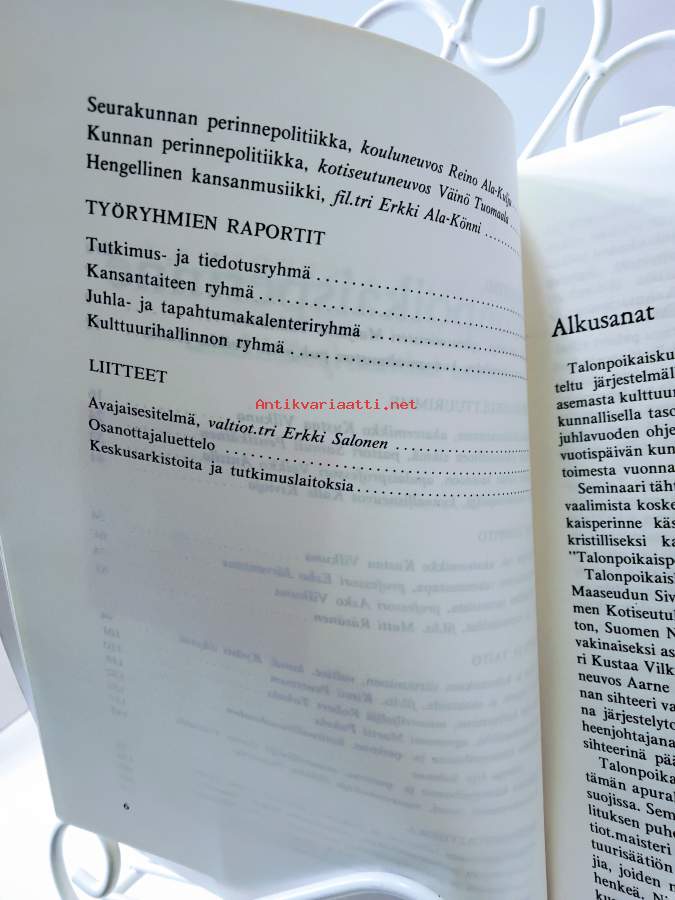 Seurakunnan perinnepolitiikka, kouluneuvos Reino Ala-Kulju
Kunnan perinnepolitiikka, kotiseutuneuvos Väinö Tuomaala
Hengellinen kansanmusiikki, fil.tri Erkki Ala-Könni
TYÖRYHMIEN RAPORTIT
Tutkimus- ja tiedotusryhmä
Kansantaiteen ryhmä
Juhla- ja tapahtumakalenteriryhmä
Kulttuurihallinnon ryhmä
LIITTEET
Avajaisesitelmä, valtiot.tri Erkki Salonen
Osanottajaluettelo
Keskusarkistoita ja tutkimuslaitoksia
6
Antikvariaatti.net
Alkusanat
Talonpoikaisku
teltu järjestelmäll
asemasta kulttuur
kunnallisella taso
juhlavuoden ohje
vuotispäivän kun
toimesta vuonna
Seminaari täht
vaalimista koske
kaisperinne käs
kristilliseksi ka
"Talonpoikaispe
Talonpoikais
Maaseudun Siv
men Kotiseutul
ton, Suomen N
vakinaiseksi as
ri Kustaa Vilk
neuvos Aarne
nan sihteeri va
na järjestelyto
heenjohtajana
sihteerinä pää
Talonpoika
tämän apural
suojissa. Sem
lituksen puhe
tiot.maisteri
tuurisäätiön
jia, joiden n
henkeä. Ni